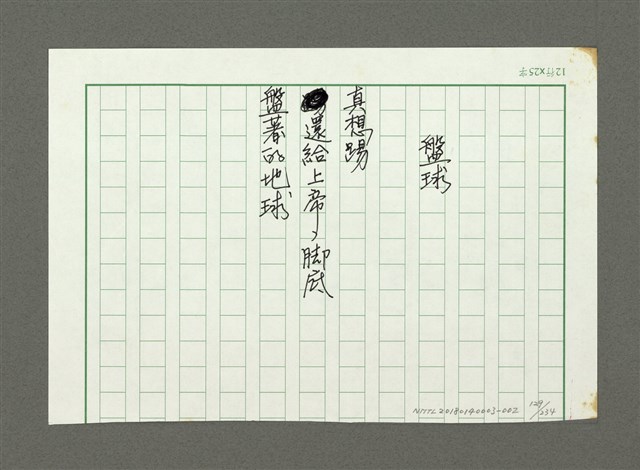 12行×25字
盤球
真想踢
還給上帝、腳底
盤著的地球
NMTL20180140003-002
129/234